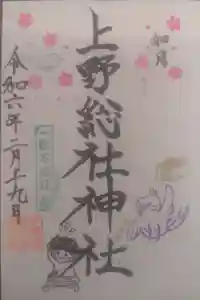 如月
上野総社神社
令和六年二月十九日